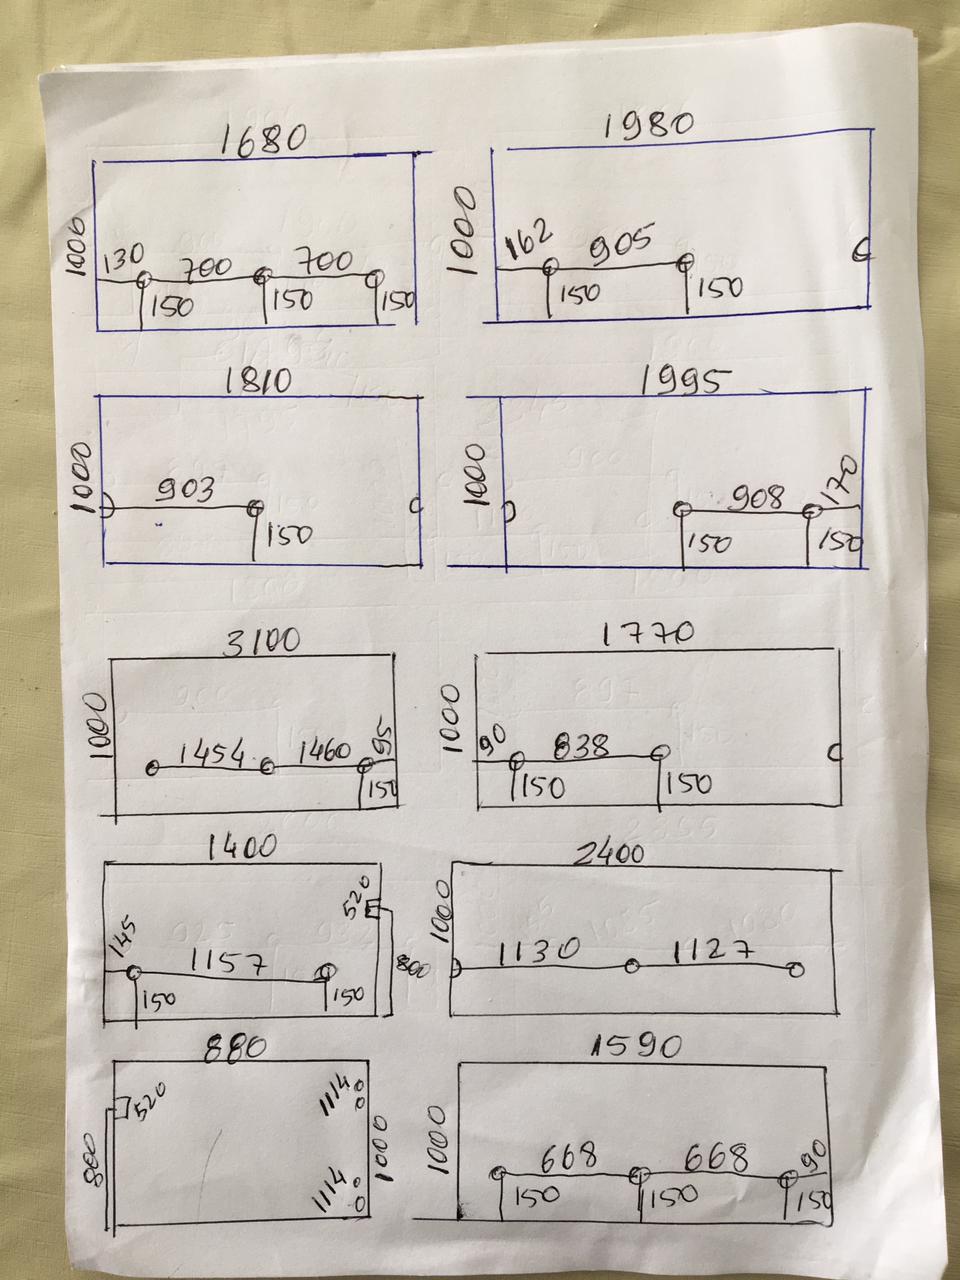 1680
1000
130 700 700
150 150 150
1980
1000
162 905
150 150
1810
1000
903
150
1995
1000
908 170
150 150
3100
1000
1454 1460 95
150
1770
1000
90 838
150 150
1400
520
145 1157 800
150 150
2400
1000
1130 1127
880
520 1114
800 1000
1114
1590
1000
668 668 90
150 150 150